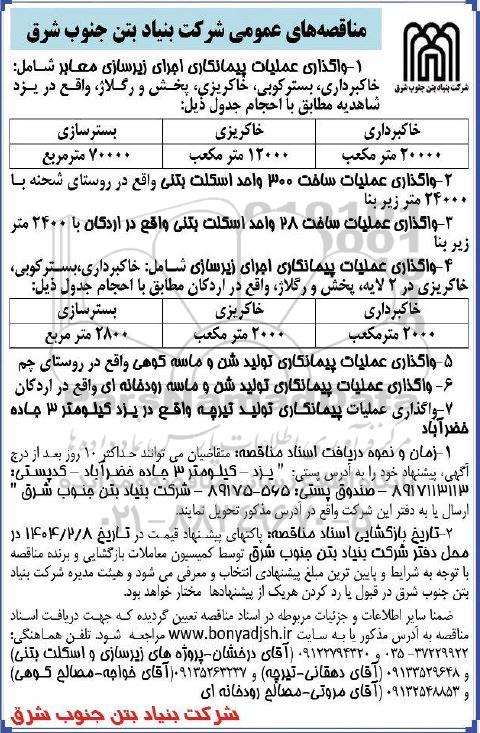 مناقصه‌های عمومی شرکت بنیاد بتن جنوب شرق
شرکت بنیاد بتن جنوب شرق
۱-واگذاری عملیات پیمانکاری اجرای زیرسازی معابر شامل:
خاکبرداری، بسترکوبی، خاکریزی، پخش و رگلاژ، واقع در یزد
شاهدیه مطابق با احجام جدول ذیل:
خاکبرداری خاکریزی بسترسازی
۲۰۰۰۰ متر مکعب ۱۲۰۰۰ متر مکعب ۷۰۰۰۰ مترمربع
۲-واگذاری عملیات ساخت ۳۰۰ واحد اسکلت بتنی واقع در روستای شحنه با
۲۴۰۰۰ متر زیر بنا
۳-واگذاری عملیات ساخت ۲۸ واحد اسکلت بتنی واقع در اردکان با ۲۴۰۰ متر
زیر بنا
۴-واگذاری عملیات پیمانکاری اجرای زیرسازی شامل: خاکبرداری،بسترکوبی،
خاکریزی در ۲ لایه، پخش و رگلاژ، واقع در اردکان مطابق با احجام جدول ذیل:
خاکبرداری خاکریزی بسترسازی
۲۰۰۰ مترمکعب ۲۰۰۰ متر مکعب ۲۸۰۰ متر مربع
۵-واگذاری عملیات پیمانکاری تولید شن و ماسه کوهی واقع در روستای چم
۶- واگذاری عملیات پیمانکاری تولید شن و ماسه رودخانه ای واقع در اردکان
۷-واگذاری عملیات پیمانکاری تولید تیرچه واقع در یزد کیلومتر ۳ جاده
خضرآباد
۱-زمان و نحوه دریافت اسناد مناقصه: متقاضیان می توانند حداکثر ۱۰ روز بعد از درج
آگهی، پیشنهاد خود را به آدرس پستی: " یزد - کیلومتر ۳ جاده خضرآباد - کدپستی:
۸۹۱۷۱۱۳۱۱۳ - صندوق پستی: ۵۶۵-۸۹۱۷۵ - شرکت بنیاد بتن جنوب شرق "
ارسال یا به دفتر این شرکت واقع در آدرس مذکور تحویل نمایند.
۲-تاریخ بازگشایی اسناد مناقصه: پاکتهای پیشنهاد قیمت در تاریخ ۱۴۰۴/۲/۸ در
محل دفتر شرکت بنیاد بتن جنوب شرق توسط کمیسیون معاملات بازگشایی و برنده مناقصه
با توجه به شرایط و پایین ترین مبلغ پیشنهادی انتخاب و معرفی می شود و هیئت مدیره شرکت بنیاد
بتن جنوب شرق در قبول یا رد کردن هریک از پیشنهادها مختار خواهد بود.
ضمنا سایر اطلاعات و جزئیات مربوطه در اسناد مناقصه تعیین گردیده که جهت دریافت اسناد
مناقصه به آدرس مذکور یا به سایت www.bonyadjsh.ir مراجعه شود. تلفن هماهنگی:
۳۷۲۲۹۹۲۲- ۰۳۵ و ۰۹۱۲۲۷۹۴۳۲۰ (آقای درخشان-پروژه های زیرسازی و اسکلت بتنی)
و ۰۹۱۳۳۵۲۹۶۴۸ (آقای دهقانی-تیرچه) و ۰۹۱۳۵۲۶۳۲۳۷ (آقای خواجه-مصالح کوهی)
و ۰۹۱۳۲۵۴۸۸۵۳ (آقای مروتی-مصالح رودخانه ای
شرکت بنیاد بتن جنوب شرق